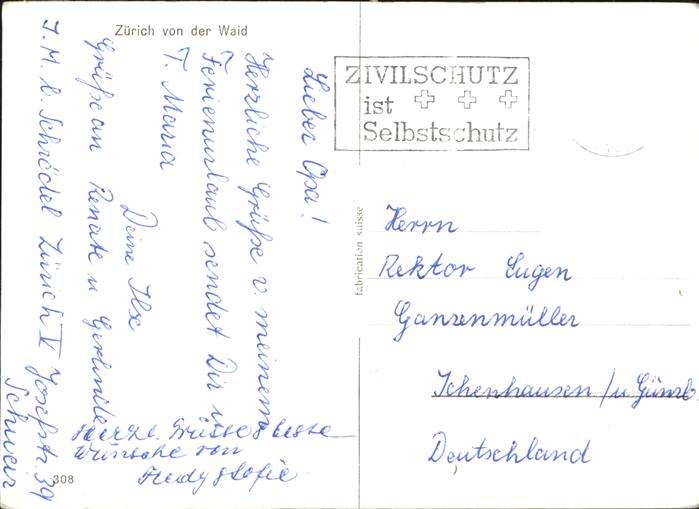 Zürich von der Waid
Lieber Opa!
Herzliche Grüße v. meinem
Ferienurlaub sendet Dir u.
T. Maria
Deine Ilse
Grüße an Renate u Gerlinde
J. M. L. Schrödel Zürich V Josefstr. 39
Schweiz
Herzl. Grüsse & beste
Wünsche von
Fredy & Sofie
308
fabrication suisse
ZIVILSCHUTZ
ist
Selbstschutz
Herrn
Rektor Eugen
Ganzenmüller
Ichenhausen /u Günzb.
Deutschland